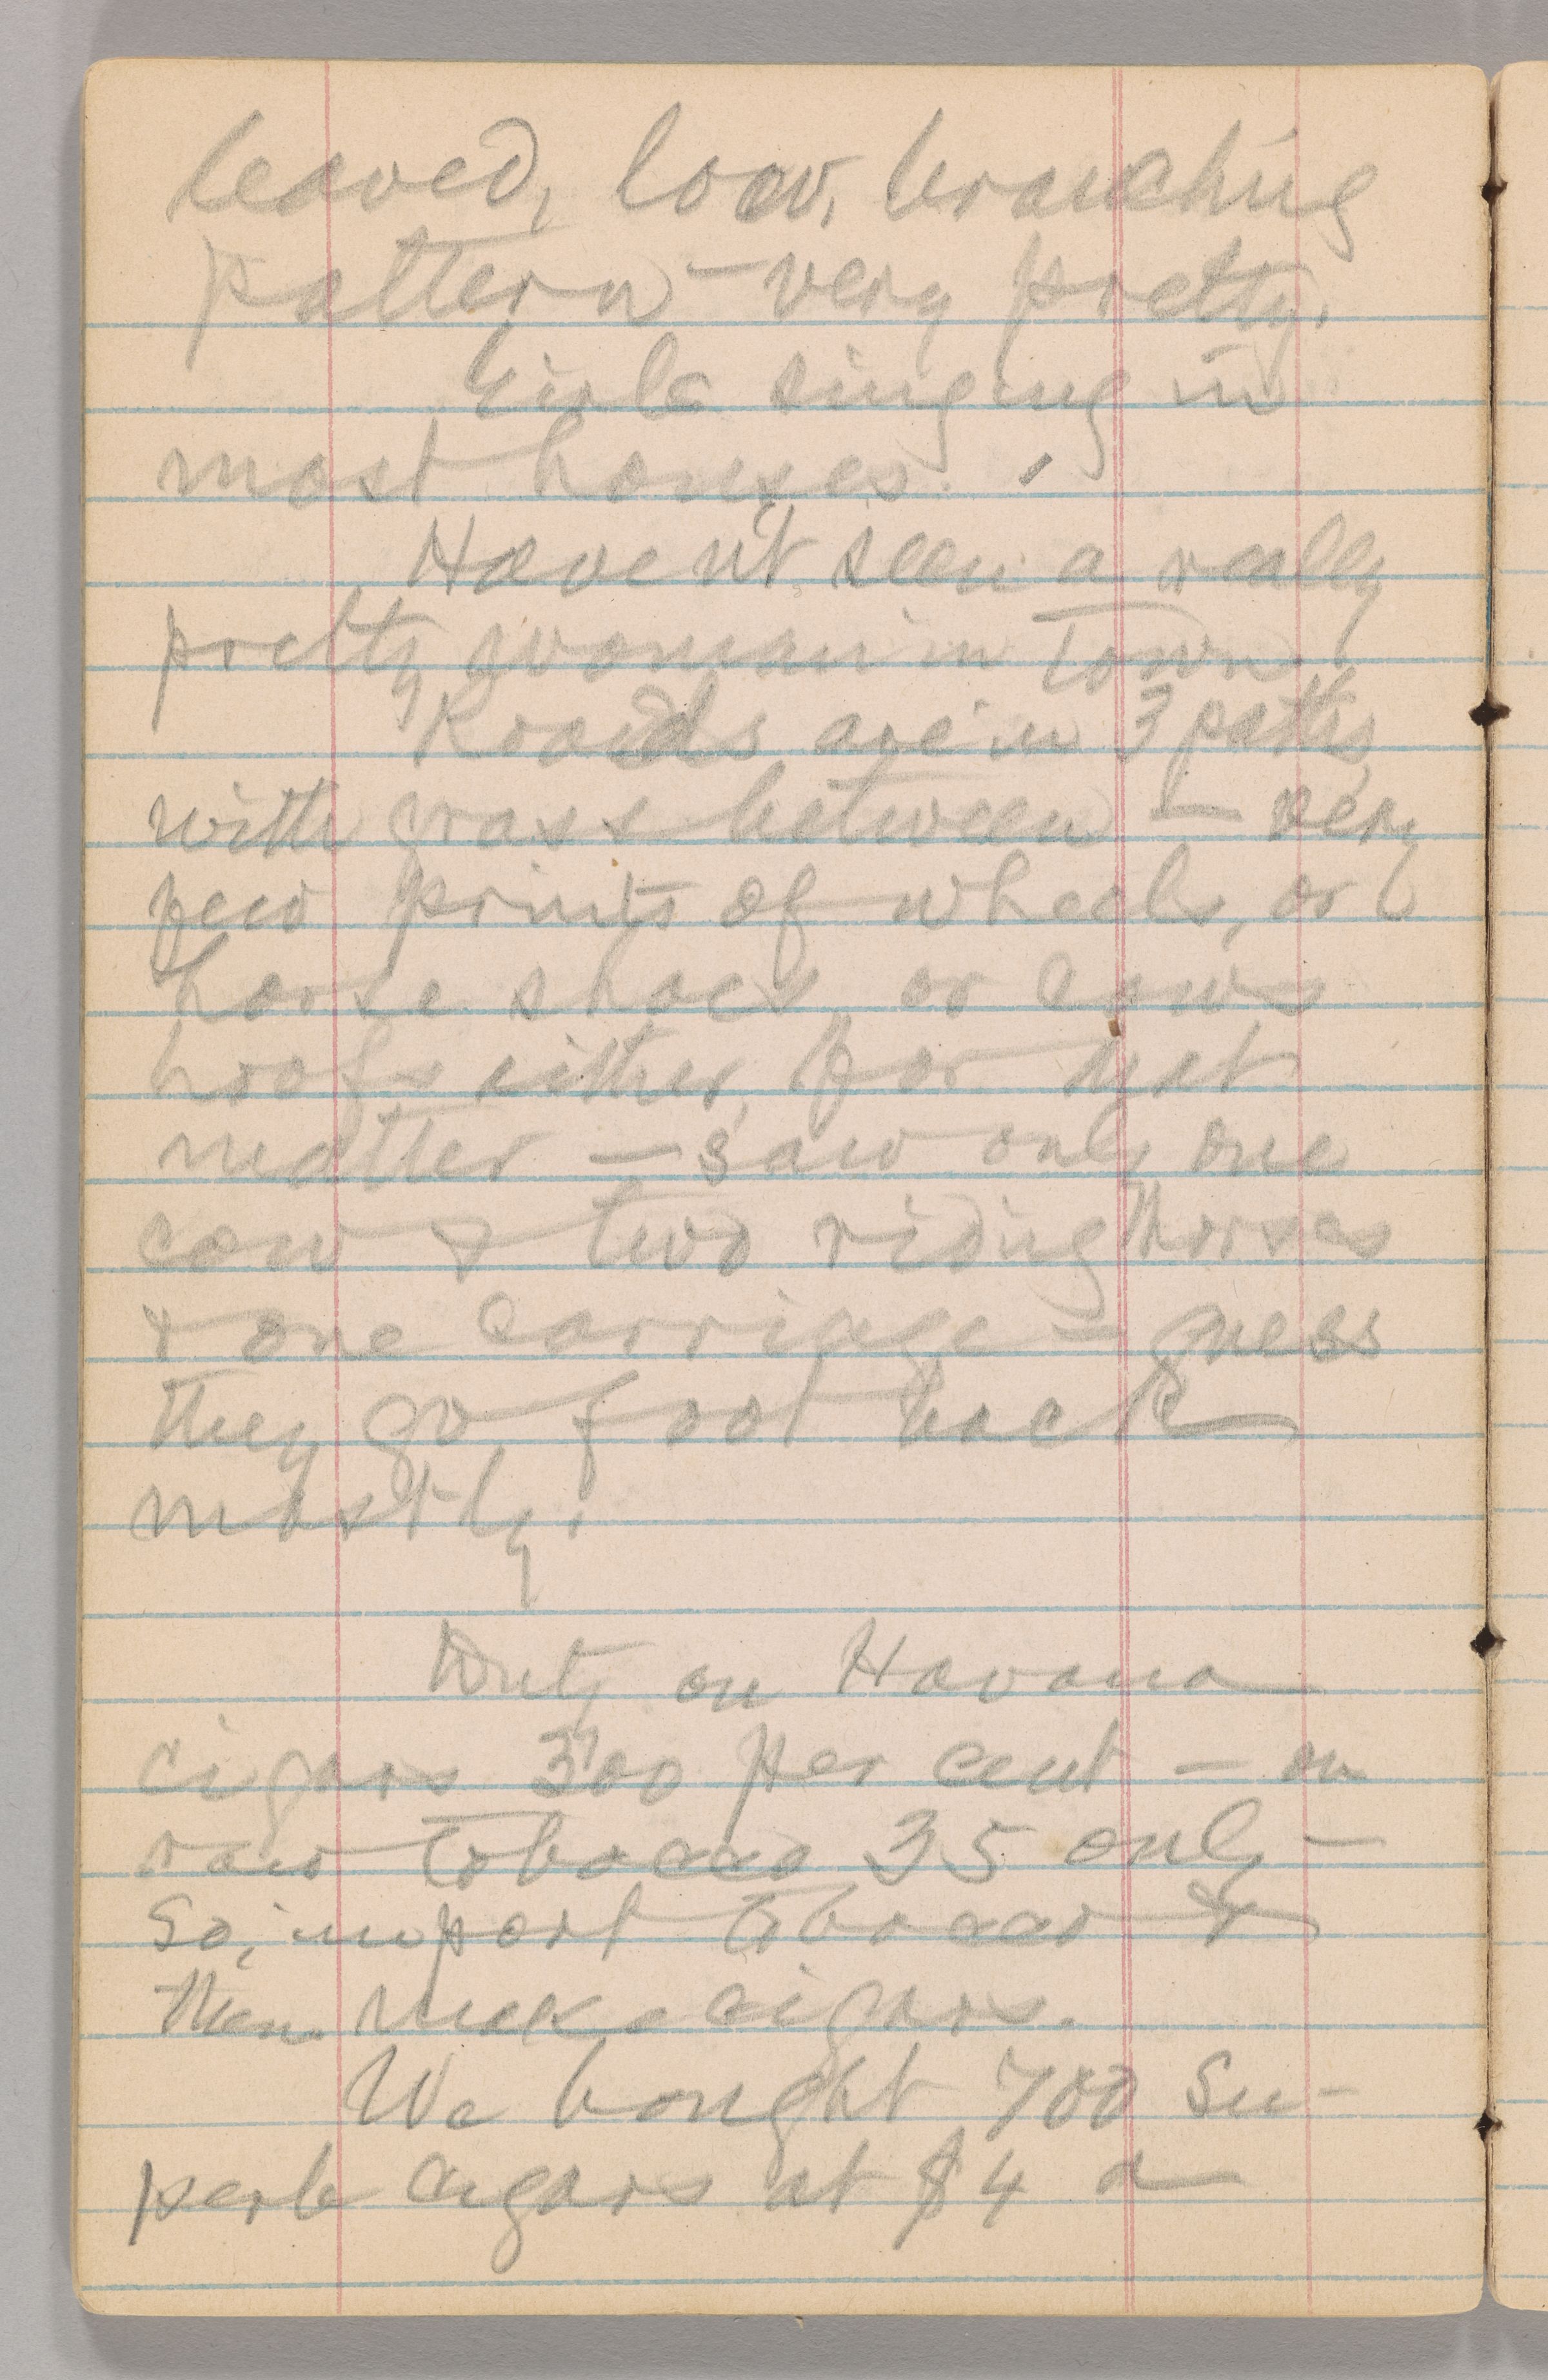 leaved, low, branching
pattern — very pretty.
Girls singing in
most houses.
Have n't seen a really
pretty woman in town.
Roads are in 3 paths,
with grass between — very
few prints of wheels, or
horse shoes or cows
hoofs either, for yet
matter — saw only one
cow & two riding horses
& one carriage — guess
they go foot back
mostly.
Duty on Havana
cigars 300 per cent — on
raw tobacco 35 only —
So, import tobacco &
then make cigars.
We bought 700 su-
perb cigars at $4 a